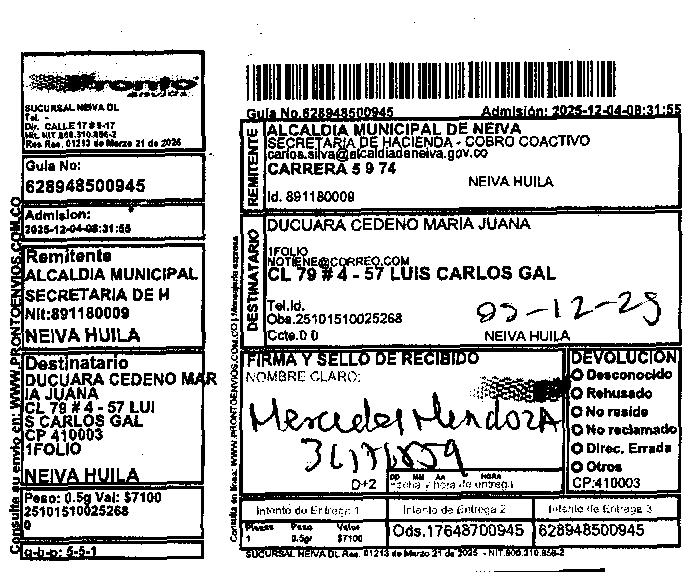 Pronto
envios
SUCURSAL NEIVA DL
Tel. -
Dir. CALLE 17 # 5-17
Res Res. 01213 de Marzo 21 de 2025
Guia No:
628948500945
Admision:
2025-12-04-08:31:55
Remitente
ALCALDIA MUNICIPAL
SECRETARIA DE H
Nit:891180009
NEIVA HUILA
Destinatario
DUCUARA CEDENO MAR
IA JUANA
CL 79 # 4 - 57 LUI
S CARLOS GAL
CP 410003
1FOLIO
NEIVA HUILA
Peso: 0.5g Val: $7100
25101510025268
0
q-b-p: 5-5-1
Consulte su envio en: WWW.PRONTOENVIOS.COM.CO
Guia No.628948500945 Admisión: 2025-12-04-08:31:55
REMITENTE
ALCALDIA MUNICIPAL DE NEIVA
SECRETARIA DE HACIENDA - COBRO COACTIVO
carlos.silva@alcaldiadeneiva.gov.co
CARRERA 5 9 74
NEIVA HUILA
Id. 891180009
DESTINATARIO
DUCUARA CEDENO MARIA JUANA
1FOLIO
NOTIENE@CORREO.COM
CL 79 # 4 - 57 LUIS CARLOS GAL
Tel.Id.
Obs.25101510025268
Ccte.0 0
NEIVA HUILA
FIRMA Y SELLO DE RECIBIDO
NOMBRE CLARO:
Mercedes Mendoza
D+2
DD MM AA HORA
Fecha y hora de entrega
DEVOLUCIÓN
Desconocido
Rehusado
No reside
No reclamado
Direc. Errada
Otros
CP:410003
Intento de Entrega 1
Intento de Entrega 2
Intento de Entrega 3
Piezas Peso Valor
1 0.5gr $7100
Ods.17648700945
628948500945
SUCURSAL NEIVA DL Res. 01213 de Marzo 21 de 2025 - NIT.900.310.856-2